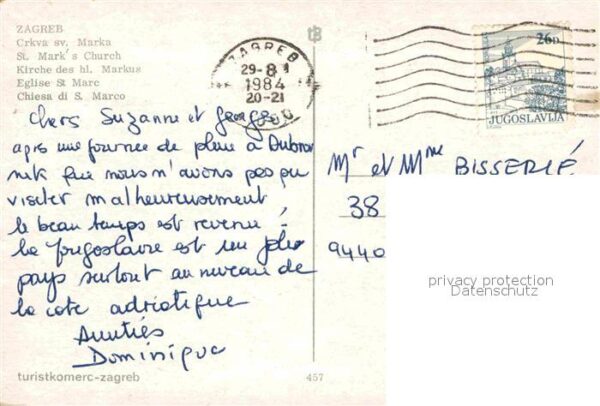 ZAGREB
Crkva sv. Marka
St. Mark's Church
Kirche des hl. Markus
Eglise St Marc
Chiesa di S. Marco
ZAGREB
29-8
1984
20-21
26D
JUGOSLAVIJA
Chers Suzanne et Georges
après une journée de pluie à Dubrov
nik que nous n'avons pas pu
visiter malheureusement
le beau temps est revenu !
la Yugoslavie est un joli
pays surtout au niveau de
la cote adriatique
Amitiés
Dominique
Mr et Mme BISSERIÉ
38
9440
privacy protection
Datenschutz
turistkomerc-zagreb
457